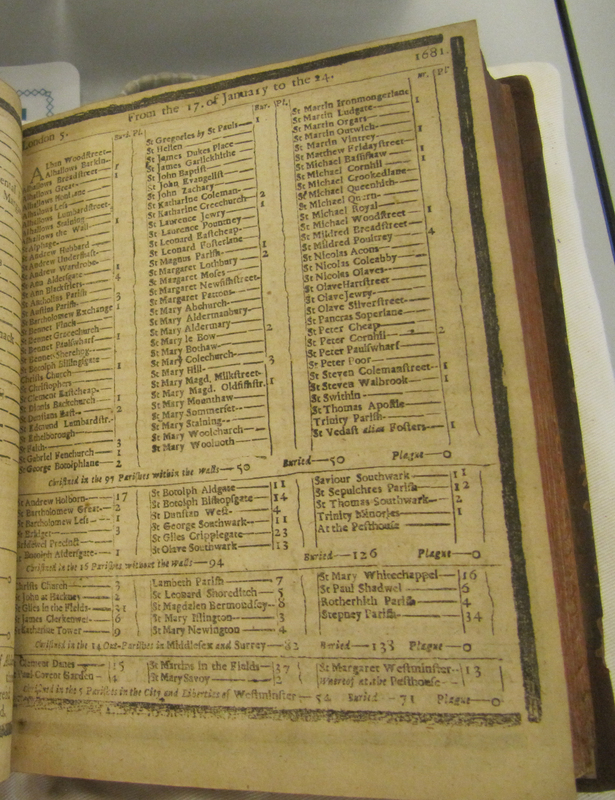 London 5. From the 17. of January to the 24. 1681.
Bur. Pl.
Alban Woodstreet
Alhallows Barkin
Alhallows Breadstreet 1
Alhallows Great 1
Alhallows Honilane
Alhallows Less
Alhallows Lumbardstreet
Alhallows Staining
Alhallows the Wall 1
St Alphage
St Andrew Hubbard
St Andrew Undershaft
St Andrew Wardrobe 1
St Ann Aldersgate 4
St Ann Blackfriers
St Antholins Parish 3
St Austins Parish
St Bartholomew Exchange 1
St Bennet Fynck
St Bennet Gracechurch
St Bennet Paulswharf 1
St Bennet Sherehog
St Botolph Billingsgate 1
Christs Church
St Christophers
St Clement Eastcheap
St Dionis Backchurch 1
St Dunstans East 2
St Edmund Lumbardstr.
St Ethelborough
St Faith 3
St Gabriel Fenchurch 1
St George Botolphlane 2
Bur. Pl.
St Gregories by St Pauls 1
St Hellen
St James Dukes Place
St James Garlickhithe
St John Baptist
St John Evangelist
St John Zachary
St Katharine Coleman 2
St Katharine Creechurch 1
St Lawrence Jewry
St Lawrence Pountney
St Leonard Eastcheap
St Leonard Fosterlane 1
St Magnus Parish 2
St Margaret Lothbury
St Margaret Moses
St Margaret Newfishstreet
St Margaret Pattons
St Mary Abchurch
St Mary Aldermanbury
St Mary Aldermary 2
St Mary le Bow
St Mary Bothaw
St Mary Colechurch
St Mary Hill 3
St Mary Magd. Milkstreet
St Mary Magd. Oldfishstr. 1
St Mary Mounthaw
St Mary Sommerset
St Mary Staining
St Mary Woolchurch
St Mary Woolnoth
Bur. Pl
St Martin Ironmongerlane
St Martin Ludgate 1
St Martin Orgars
St Martin Outwich
St Martin Vintrey
St Matthew Fridaystreet
St Michael Bassishaw 1
St Michael Cornhil
St Michael Crookedlane
St Michael Queenhith
St Michael Quern
St Michael Royal
St Michael Woodstreet 1
St Mildred Breadstreet
St Mildred Poultrey 4
St Nicolas Acons
St Nicolas Coleabby
St Nicolas Olaves
St Olave Hartstreet
St Olave Jewry
St Olave Silverstreet
St Pancras Soperlane
St Peter Cheap
St Peter Cornhil 2
St Peter Paulswharf
St Peter Poor
St Steven Colemanstreet 1
St Steven Walbrook 1
St Swithin
St Thomas Apostle
Trinity Parish
St Vedast alias Fosters 1
Christned in the 97 Parishes within the Walls—50 Buried—50 Plague—0
St Andrew Holborn 17
St Bartholomew Great 2
St Bartholomew Less 1
St Bridget 3
Bridewel Precinct
St Botolph Aldersgate 1
St Botolph Aldgate 11
St Botolph Bishopsgate 14
St Dunstan West 4
St George Southwark 11
St Giles Cripplegate 23
St Olave Southwark 13
Saviour Southwark 11
St Sepulchres Parish 12
St Thomas Southwark 2
Trinity Minories 1
At the Pesthouse
Christned in the 16 Parishes without the Walls—94 Buried—126 Plague—0
Christs Church 3
St John at Hackney 2
St Giles in the Fields 31
St James Clerkenwel 6
St Katharine Tower 9
Lambeth Parish 7
St Leonard Shoreditch 5
St Magdalen Bermondsey 8
St Mary Islington 3
St Mary Newington 4
St Mary Whitechappel 16
St Paul Shadwel 6
Rotherhith Parish 4
Stepney Parish 34
Christned in the 14 Out-Parishes in Middlesex and Surrey—82 Buried—133 Plague—0
Clement Danes 15
Paul Covent Garden 4
St Martins in the Fields 37
St Mary Savoy 2
St Margaret Westminster 13
Whereof at the Pesthouse
Christned in the 5 Parishes in the City and Liberties of Westminster—52 Buried—71 Plague—0